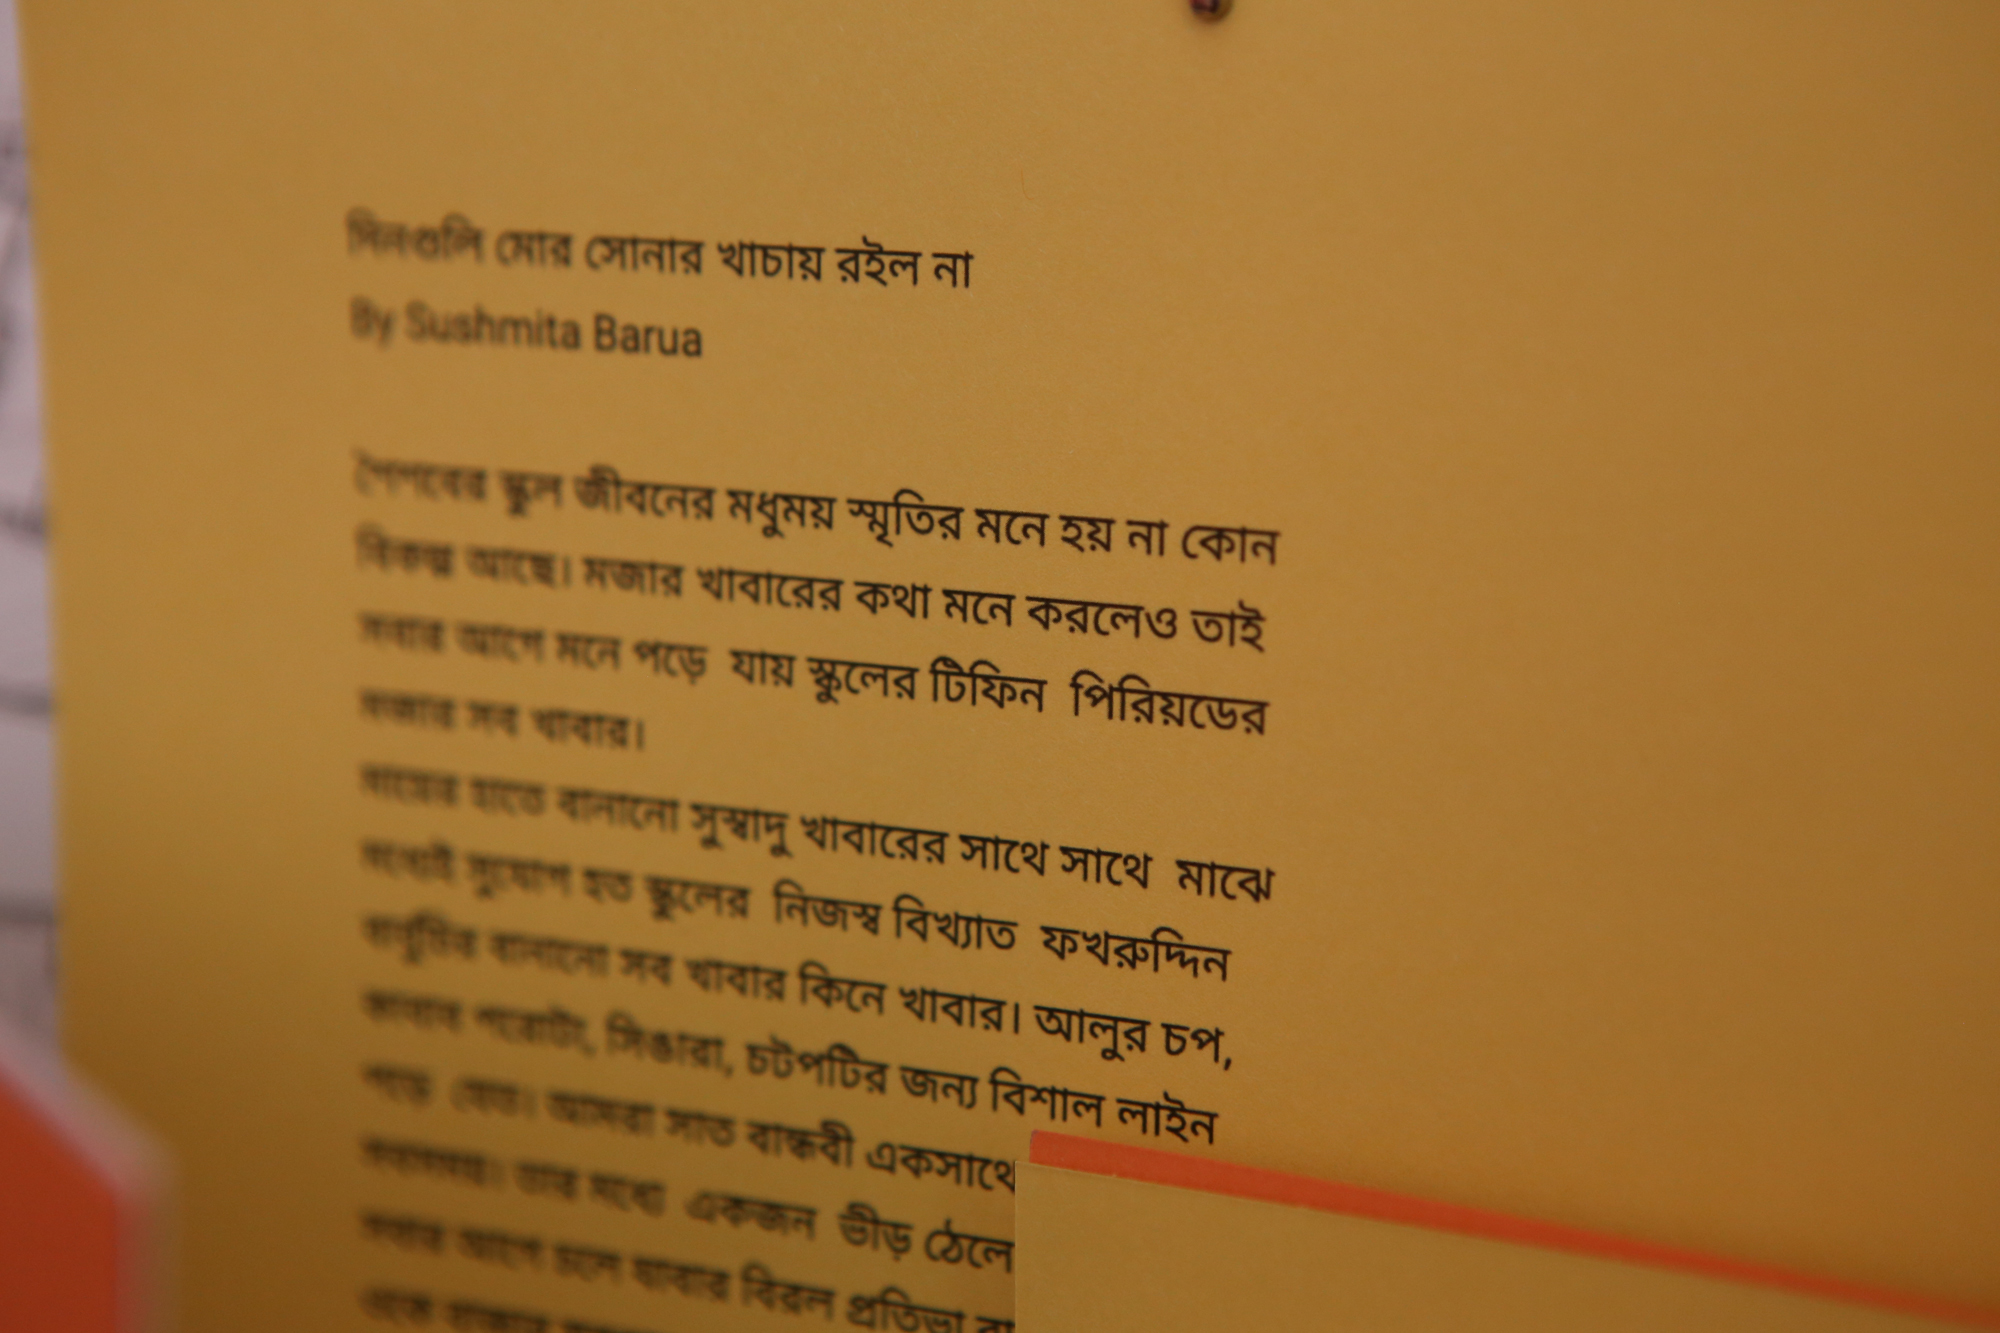 দিনগুলি মোর সোনার খাচায় রইল না
By Sushmita Barua
শৈশবের স্কুল জীবনের মধুময় স্মৃতির মনে হয় না কোন
বিকল্প আছে। মজার খাবারের কথা মনে করলেও তাই
সবার আগে মনে পড়ে যায় স্কুলের টিফিন পিরিয়ডের
মজার সব খাবার।
মায়ের হাতে বানানো সুস্বাদু খাবারের সাথে সাথে মাঝে
মধ্যেই সুযোগ হত স্কুলের নিজস্ব বিখ্যাত ফখরুদ্দিন
বাবুর্চির বানানো সব খাবার কিনে খাবার। আলুর চপ,
পরোটা, সিঙারা, চটপটির জন্য বিশাল লাইন
পড়ে যেত। আমরা সাত বান্ধবী একসাথে
তার মধ্যে একজন ভীড় ঠেলে
সবার আগে চলে যাবার বিরল প্রতিভা